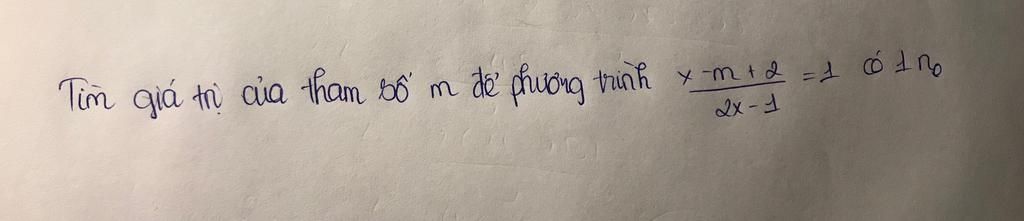 Tìm giá trị của tham số m để phương trình x-m+2/2x-1 = 1 có 1 no